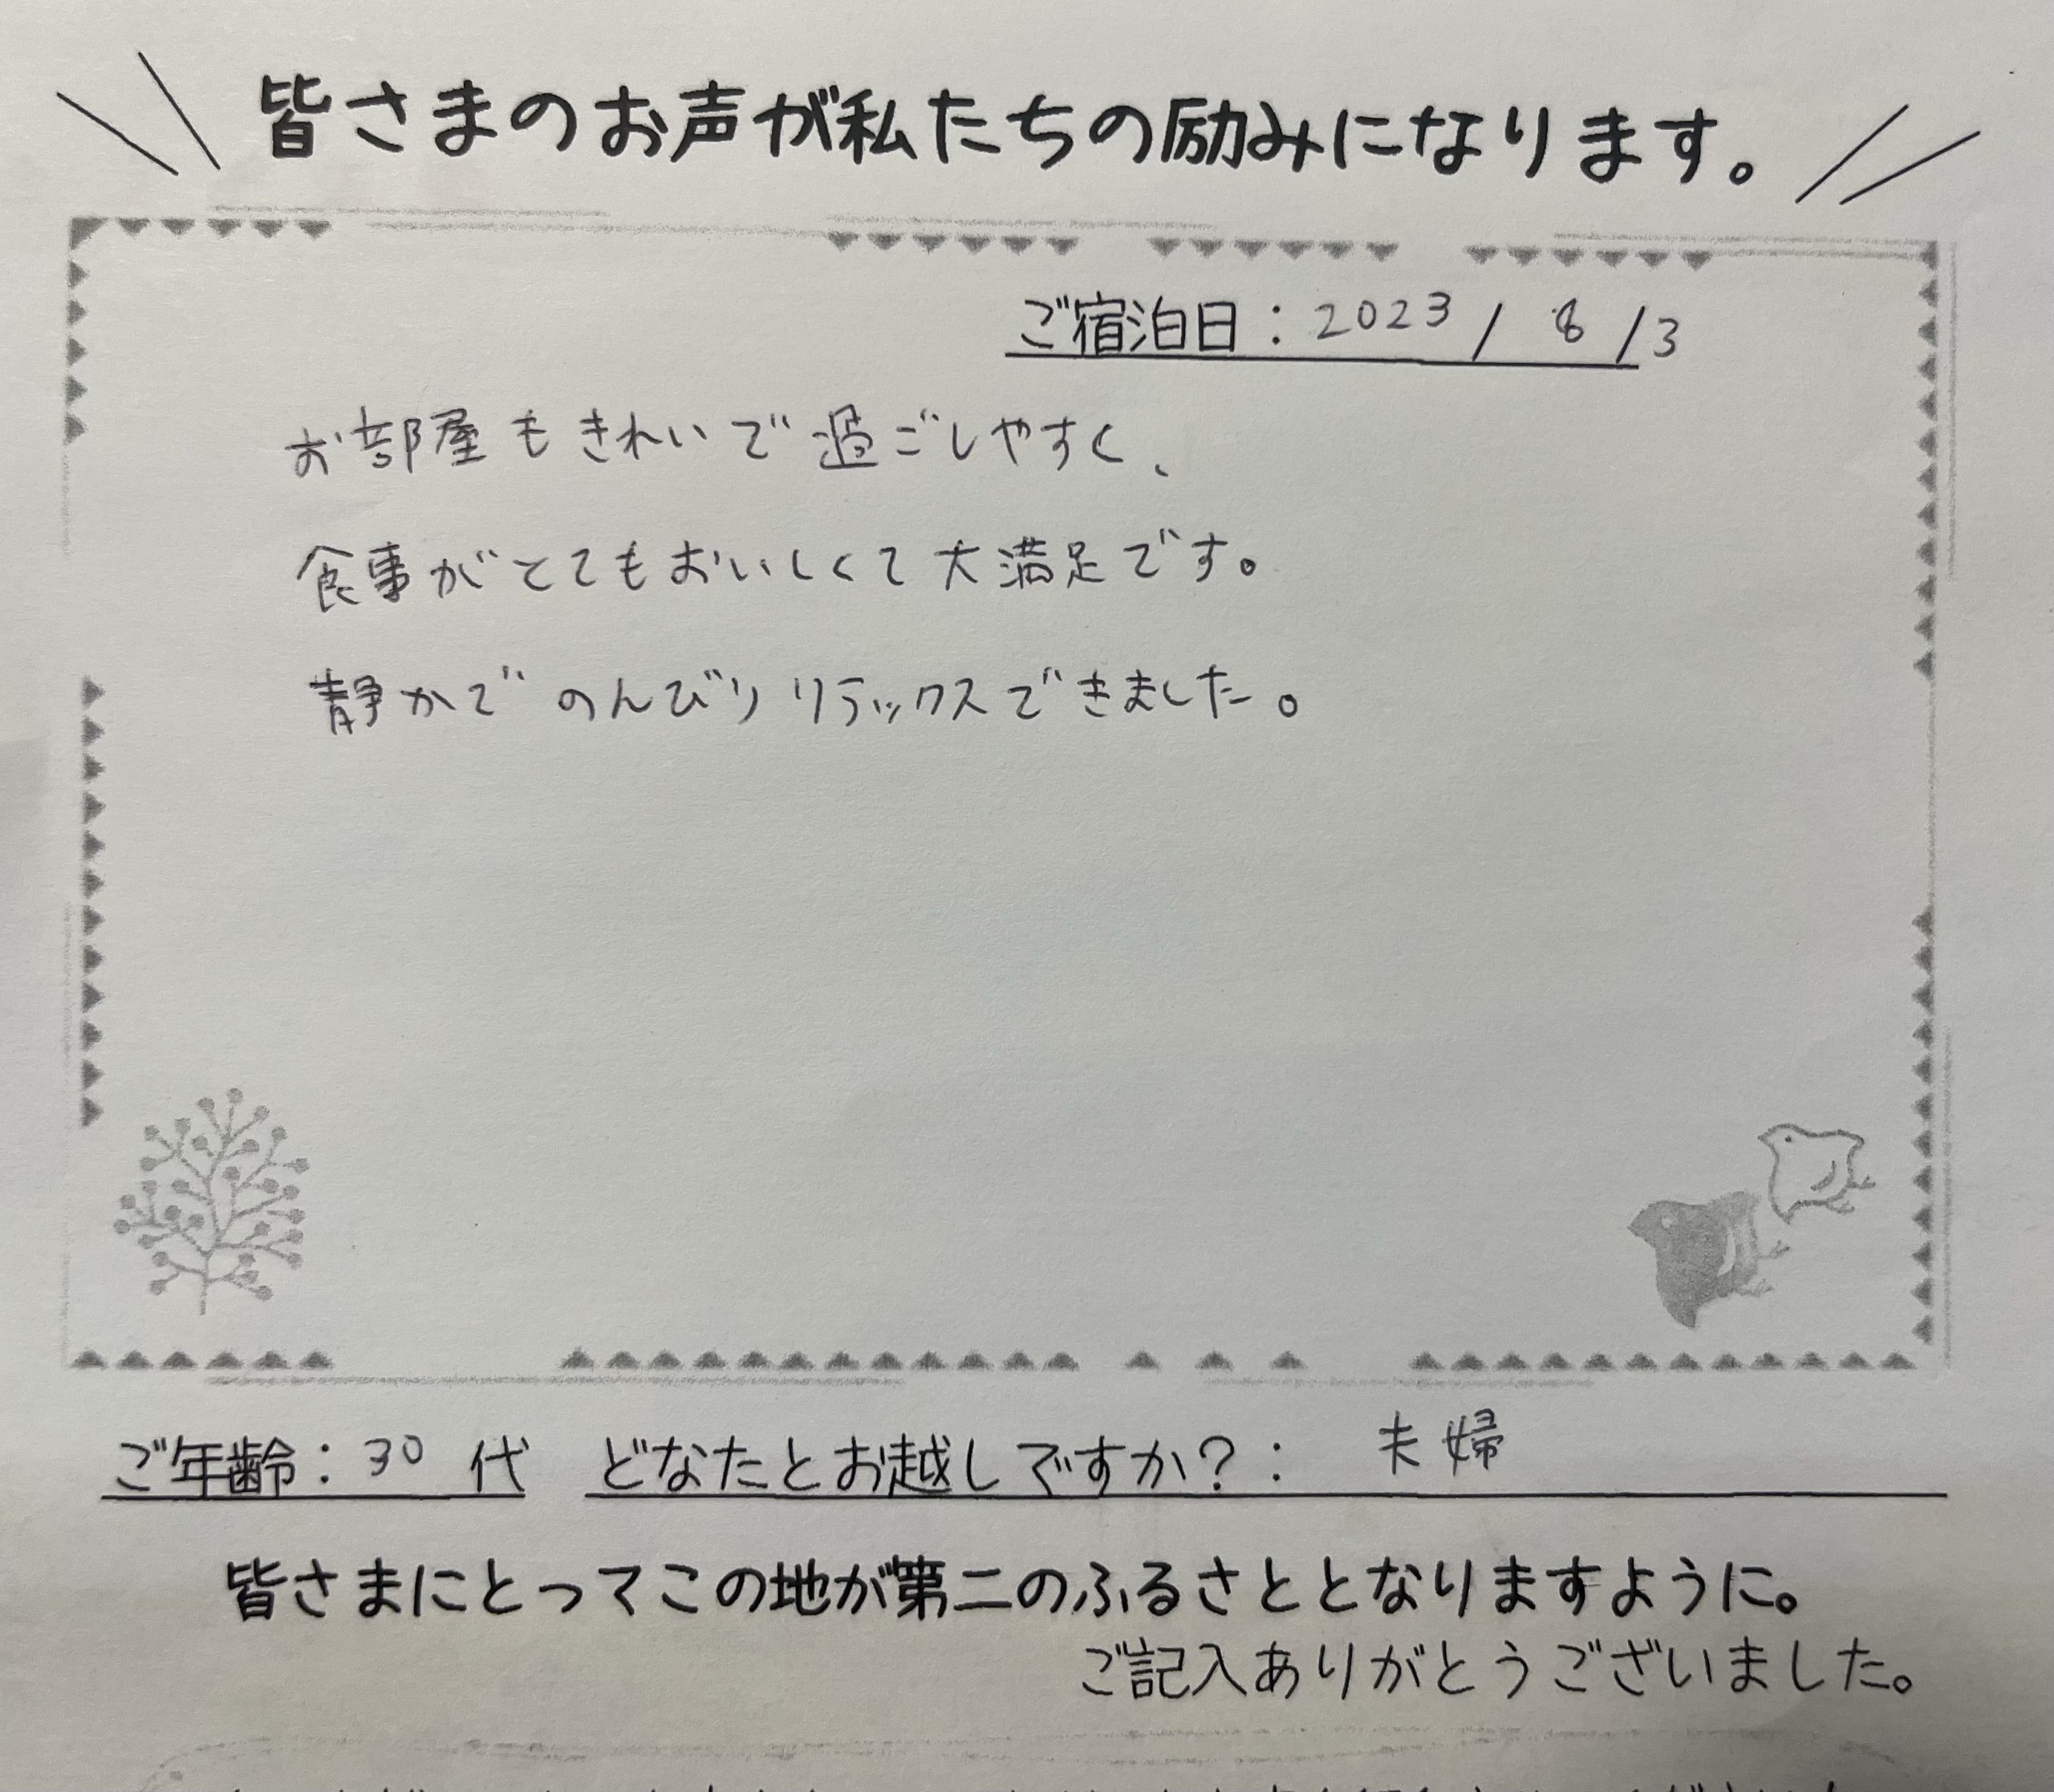 皆さまのお声が私たちの励みになります。
ご宿泊日：2023/8/3
お部屋もきれいで過ごしやすく、
食事がとてもおいしくて大満足です。
静かでのんびりリラックスできました。
ご年齢：30代 どなたとお越しですか？：夫婦
皆さまにとってこの地が第二のふるさととなりますように。
ご記入ありがとうございました。